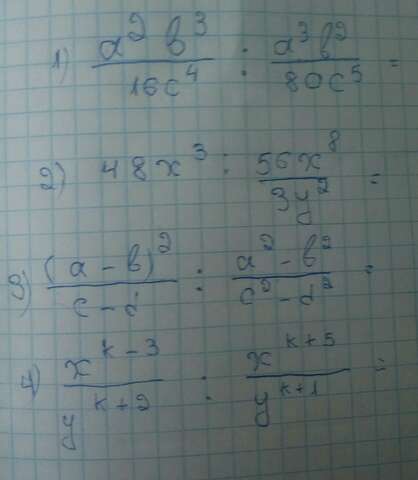 1) a²b³/16c⁴ : a³b²/80c⁵ =
2) 48x³ : 56x⁸/3y² =
3) (a-b)²/c-d : a²-b²/c²-d² =
4) x^(k-3)/y^(k+2) : x^(k+5)/y^(k+1) =